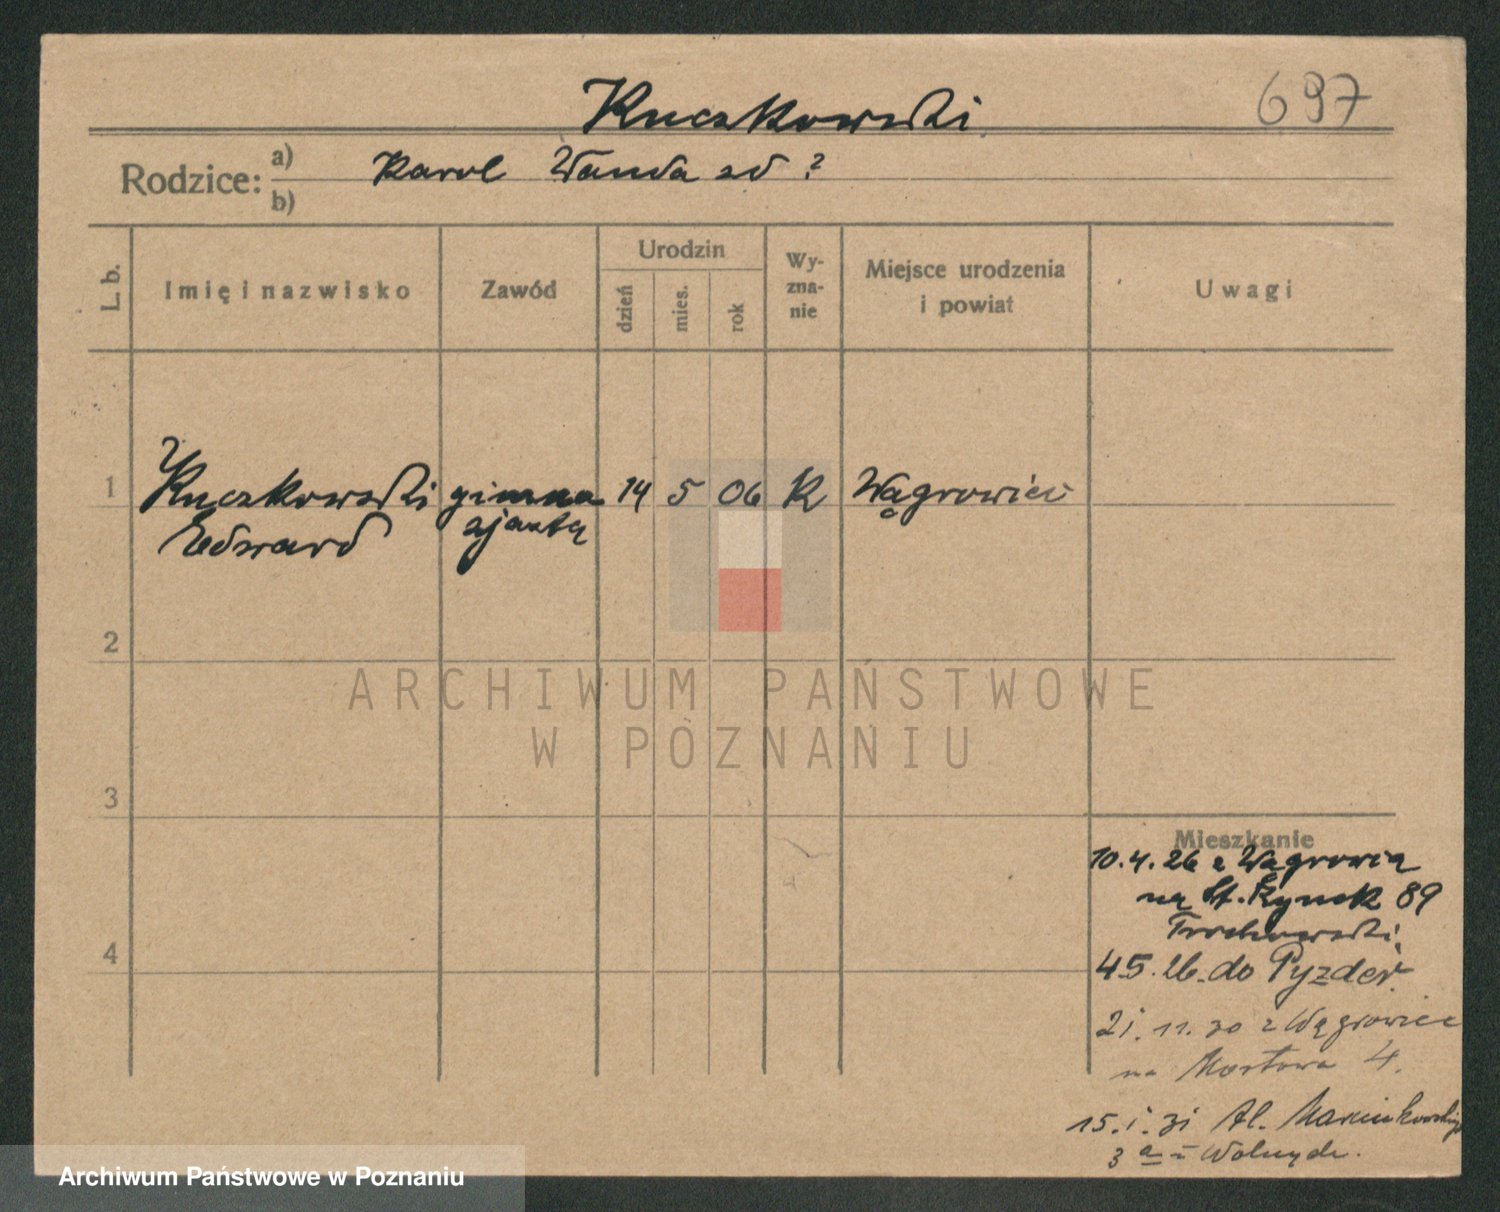 Kuczkowski
697
Rodzice: a) Karol Wanda zd ?
b)
L. b.
Imię i nazwisko
Zawód
Urodzin
dzień
mies.
rok
Wy-
zna-
nie
Miejsce urodzenia
i powiat
Uwagi
1 Kuczkowski gimna 14 5 06 K Wągrowiec
Edward
zjasta
2
3
4
Mieszkanie
10.4.26 z Wągrowca
na St. Rynek 89
Trochowski
4.5.26. do Pyzder.
21.11.30 z Wągrowiec
na Mostowa 4.
15.1.31 Al. Marcinkowskiego
3 a u Wolnych.
ARCHIWUM PAŃSTWOWE
W POZNANIU
Archiwum Państwowe w Poznaniu